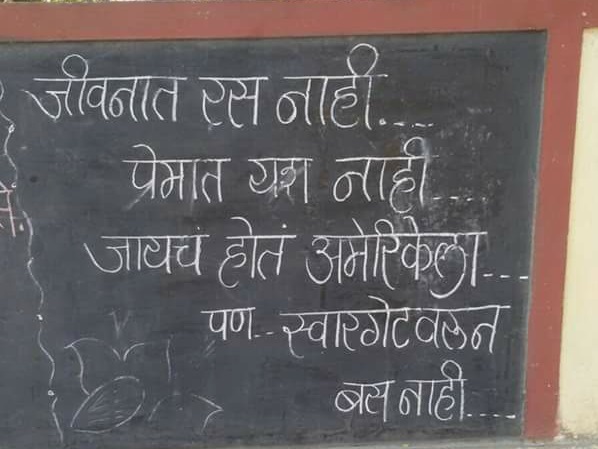 जीवनात रस नाही....
प्रेमात यश नाही....
जायचं होतं अमेरिकेला...
पण.. स्वारगेटवरून
बस नाही....